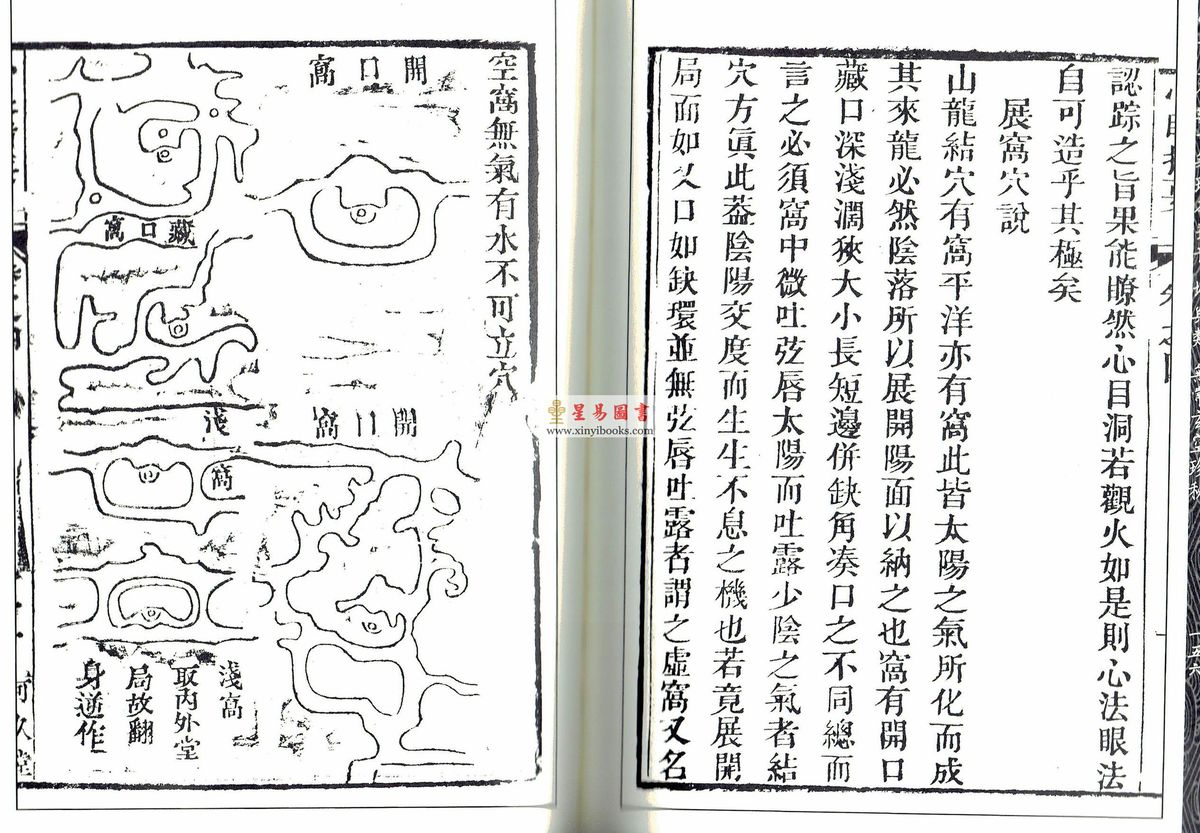 認踪之旨果能瞭然心目洞若觀火如是則心法眼法
自可造乎其極矣
展窩穴說
山龍結穴有窩平洋亦有窩此皆太陽之氣所化而成
其來龍必然陰落所以展開陽面以納之也窩有開口
藏口深淺濶狹大小長短邊併缺角凑口之不同總而
言之必須窩中微吐弦唇太陽而吐露少陰之氣者結
穴方眞此葢陰陽交度而生生不息之機也若竟展開
局而如乂口如缺環並無弦唇吐露者謂之虛窩又名
空窩無氣有水不可立穴
開口窩
藏口窩
開口窩
淺窩
淺窩
取內外堂
局故翻
身逆作
星易圖書
www.xinyibooks.com